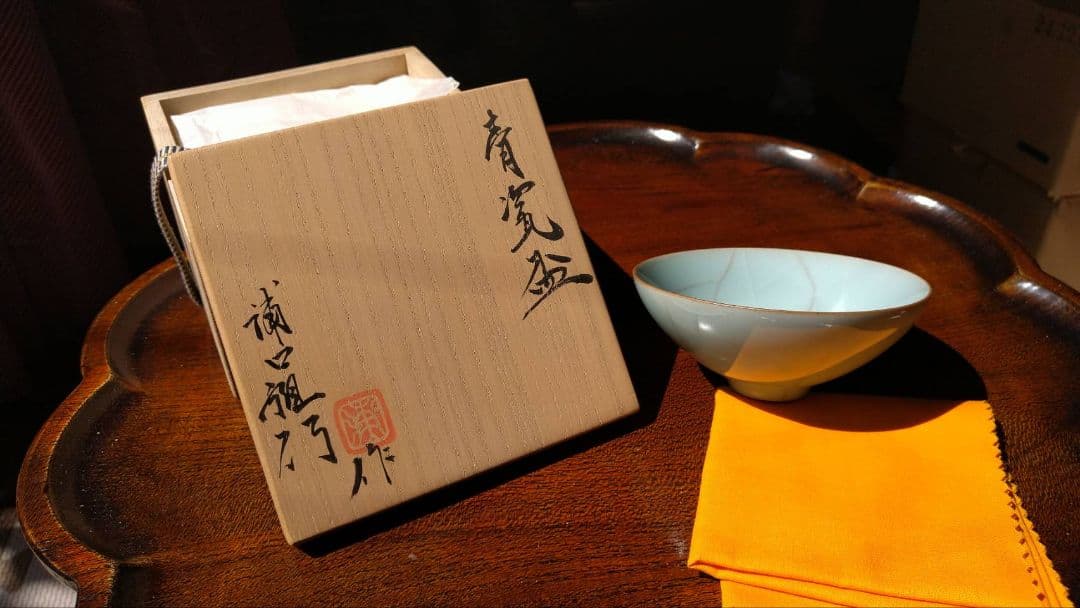 青瓷盃
浦口雅行
作